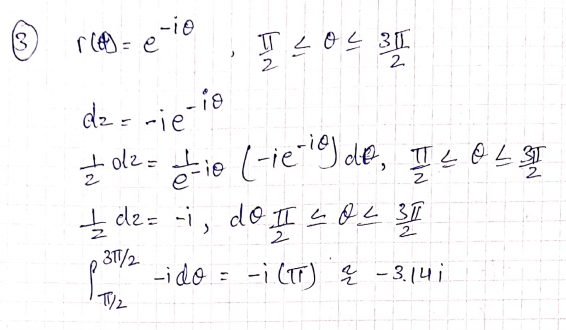 ③ r(θ) = e^{-iθ} , π/2 ≤ θ ≤ 3π/2
dz = -ie^{-iθ}
1/z dz = 1/e^{-iθ} (-ie^{-iθ}) dθ, π/2 ≤ θ ≤ 3π/2
1/z dz = -i, dθ π/2 ≤ θ ≤ 3π/2
∫_{π/2}^{3π/2} -i dθ = -i(π) ≈ -3.14i